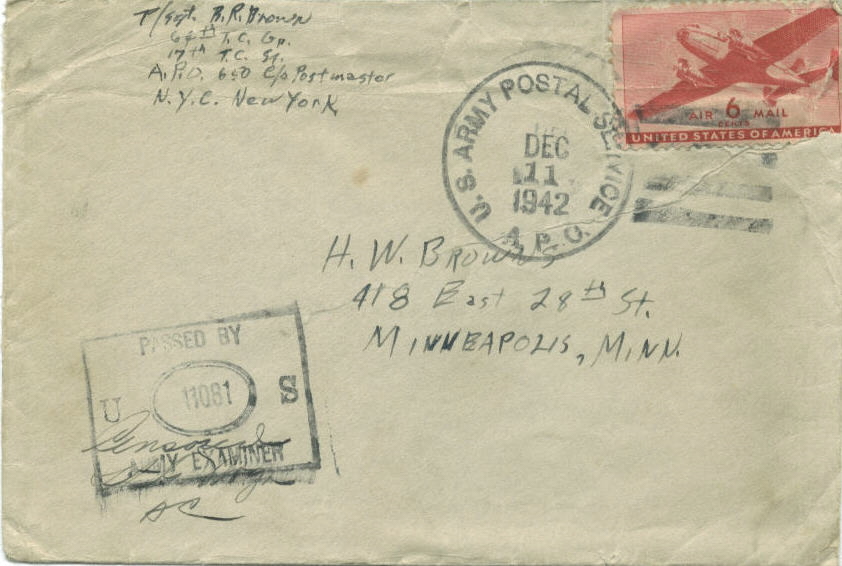 T/sgt. B.R. Brown
64th T.C. Gp.
17th T.C. Sq.
A.P.O. 650 c/o Postmaster
N.Y.C. New York
U.S. ARMY POSTAL SERVICE
DEC
11
1942
A.P.O.
AIR 6 MAIL
CENTS
UNITED STATES OF AMERICA
H. W. BROWNS
418 East 28th St.
MINNEAPOLIS, MINN.
PASSED BY
U 11081 S
ARMY EXAMINER
Censored
AC